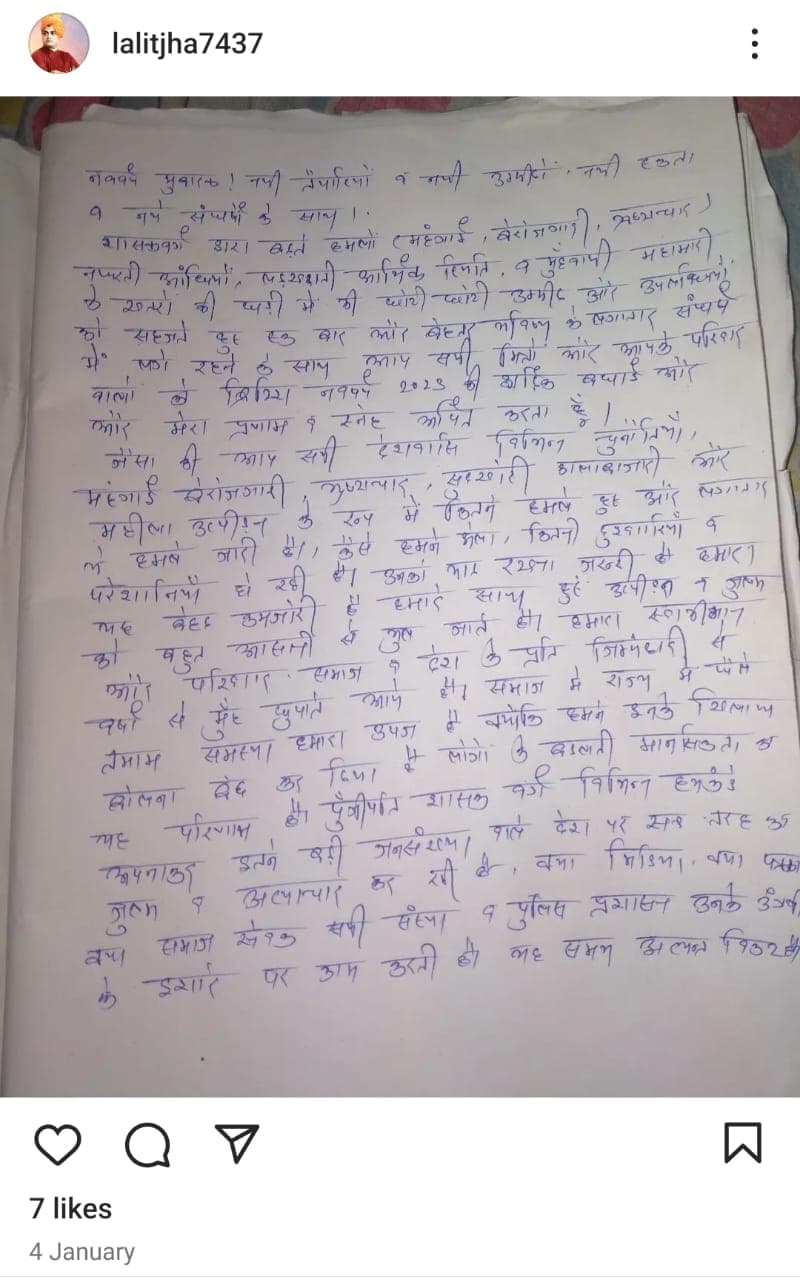 lalitjha7437
नववर्ष मुबारक! नयी तैयारियों व नयी उम्मीदों, नयी एकता
व नये संघर्षों के साथ।
शासकवर्ग द्वारा बढ़ते हमलों (महंगाई, बेरोजगारी, भ्रष्टाचार)
नफरती आंधियों, लड़खड़ाती आर्थिक स्थिति, व मुँहबायी महामारी
के खतरों की घड़ी में की छोटी छोटी उम्मीद और उपलब्धियों
को सहजते हुए एक बार और बेहतर भविष्य के लगातार संघर्ष
में लगे रहने के साथ आप सभी मित्रों और आपके परिवार
वालों को ब्रिटिश नववर्ष 2023 की हार्दिक बधाई और
और मेरा प्रणाम व स्नेह अर्पित करता हूँ।
जैसा की आप सभी देशवासि विभिन्न चुनौतियाँ,
महंगाई बेरोजगारी, भ्रष्टाचार, सुदखोरी कालाबाजारी और
महीला उत्पीड़न के रूप में कितने हमले हुए और लगातार
ये हमले जारी है।, कैसे हमने झेला, कितनी दुश्वारियाँ व
परेशानियाँ हो रही है। उनको याद रखना जरूरी है हमारा
यह बेहद कमजोरी है हमारे साथ हुए उत्पीड़न व जुल्म
को बहुत आसानी से भुल जाते है। हमारा स्वाभीमान
और परिवार समाज व देश के प्रति जिम्मेदारी से
वर्षों से मुँह छुपाते आये है। समाज मे राज्य मे फैले
तमाम समस्या हमारा उपज है क्योंकि हमने इनके खिलाफ
बोलना बंद कर दिया है लोगो के बदलती मानसिकता का
यह परिणाम है। पुँजीपति शासक वर्ग विभिन्न हथकंडे
अपनाकर इतने बड़ी जनसंख्या वाले देश पर सब तरह का
जुल्म व अत्याचार कर रही है, क्या मिडिया, क्या पत्रकार
क्या समाज सेवक सभी संस्था व पुलिस प्रशासन उनके उंगली
के इशारे पर काम करती है। यह समय अत्यन्त विकट है।
7 likes
4 January